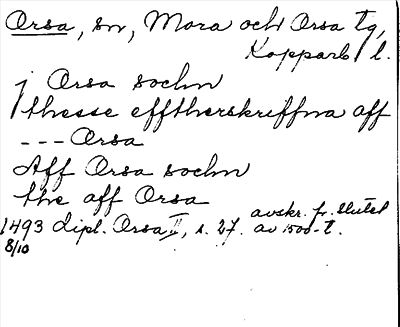 Orsa, sn, Mora och Orsa tg,
Kopparb l.
j Orsa sochn
thesse efftherskriffna aff
--- Orsa
Aff Orsa sochn
the aff Orsa
avskr. fr. slutet
1493 dipl. Orsa II, s. 27. av 1500-t.
8/10